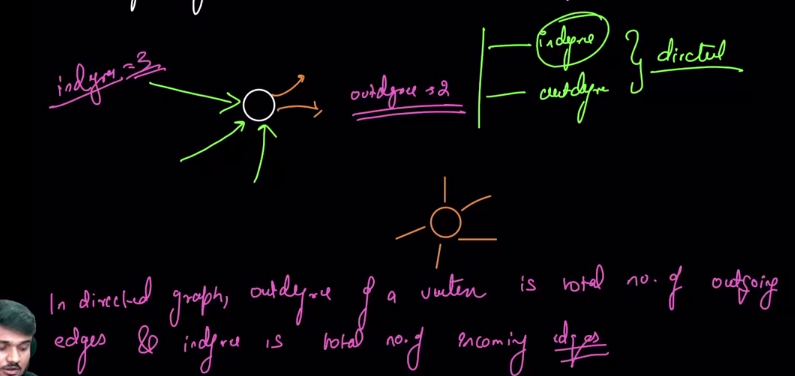 indegree = 3
outdegree = 2
indegree
outdegree
directed
In directed graph, outdegree of a vertex is total no. of outgoing
edges & indegree is total no. of incoming edges